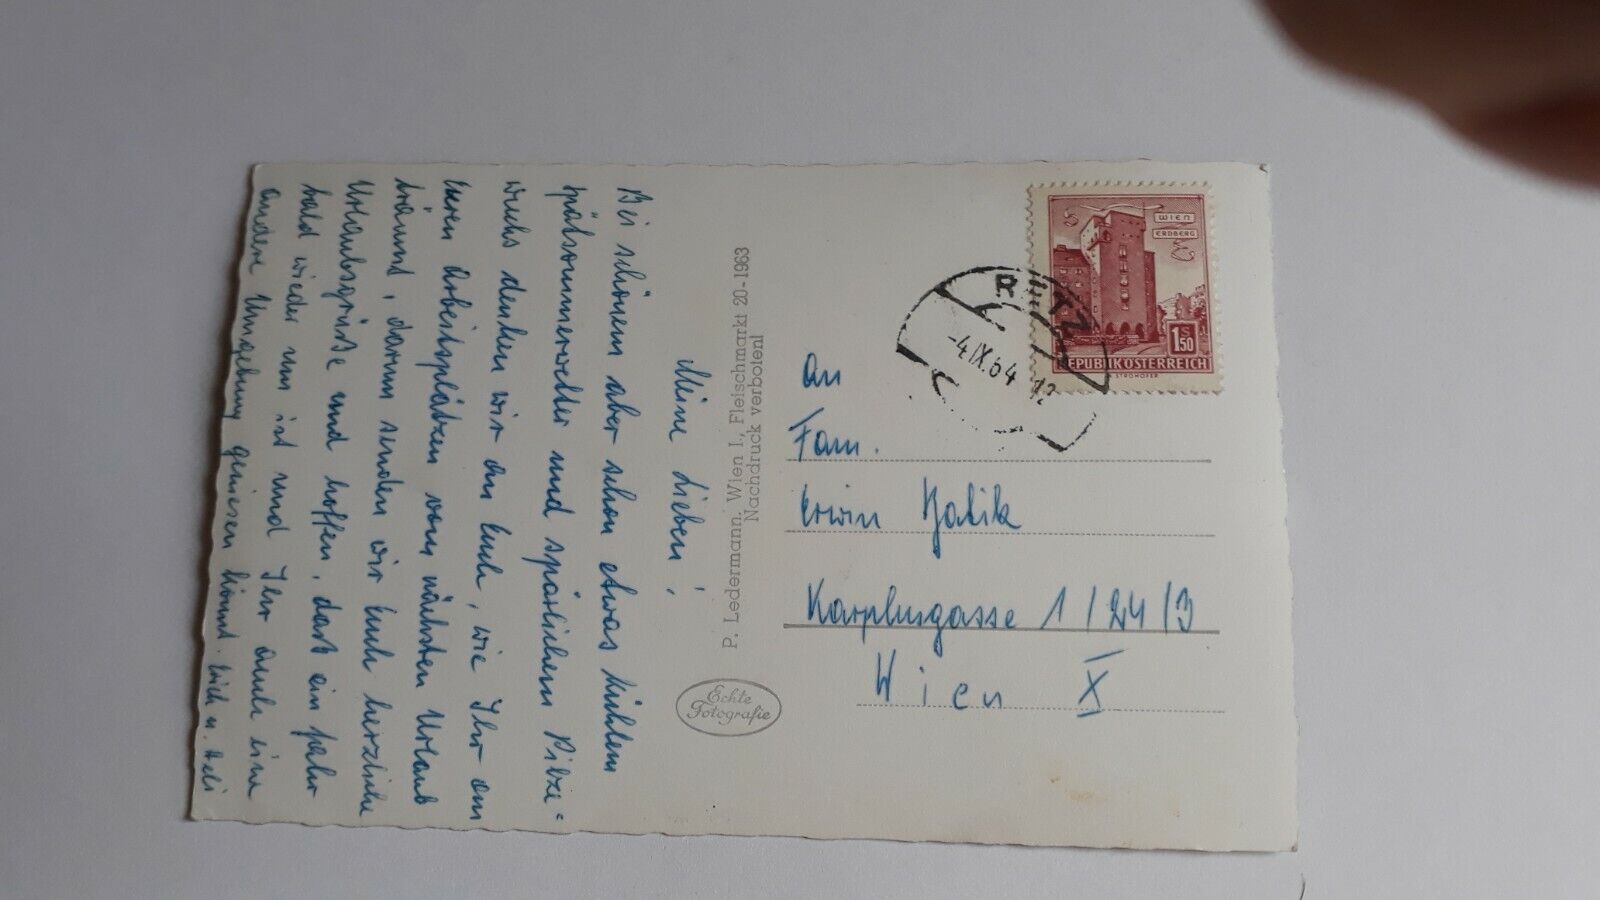 Meine Lieben!
Bei schönem aber schon etwas kühlem
spätsommerwetter und spärlichem Pilze-
wuchs denken wir an Euch, wie Ihr an
Euren Arbeitsplätzen vom nächsten Urlaub
träumt, darum senden wir Euch herzliche
Urlaubsgrüße und hoffen, daß ein Jahr
bald wieder um ist und Ihr auch eine
andere Umgebung geniesen könnt. Erich u. Heli
P. Ledermann, Wien I., Fleischmarkt 20-1963
Nachdruck verboten!
Echte
Fotografie
An
Fam.
Erwin Jalik
Karplusgasse 1/24/3
Wien X
RETZ
-4.IX.64 12
WIEN
ERDBERG
S
1 50
REPUBLIK ÖSTERREICH
STROHOFER